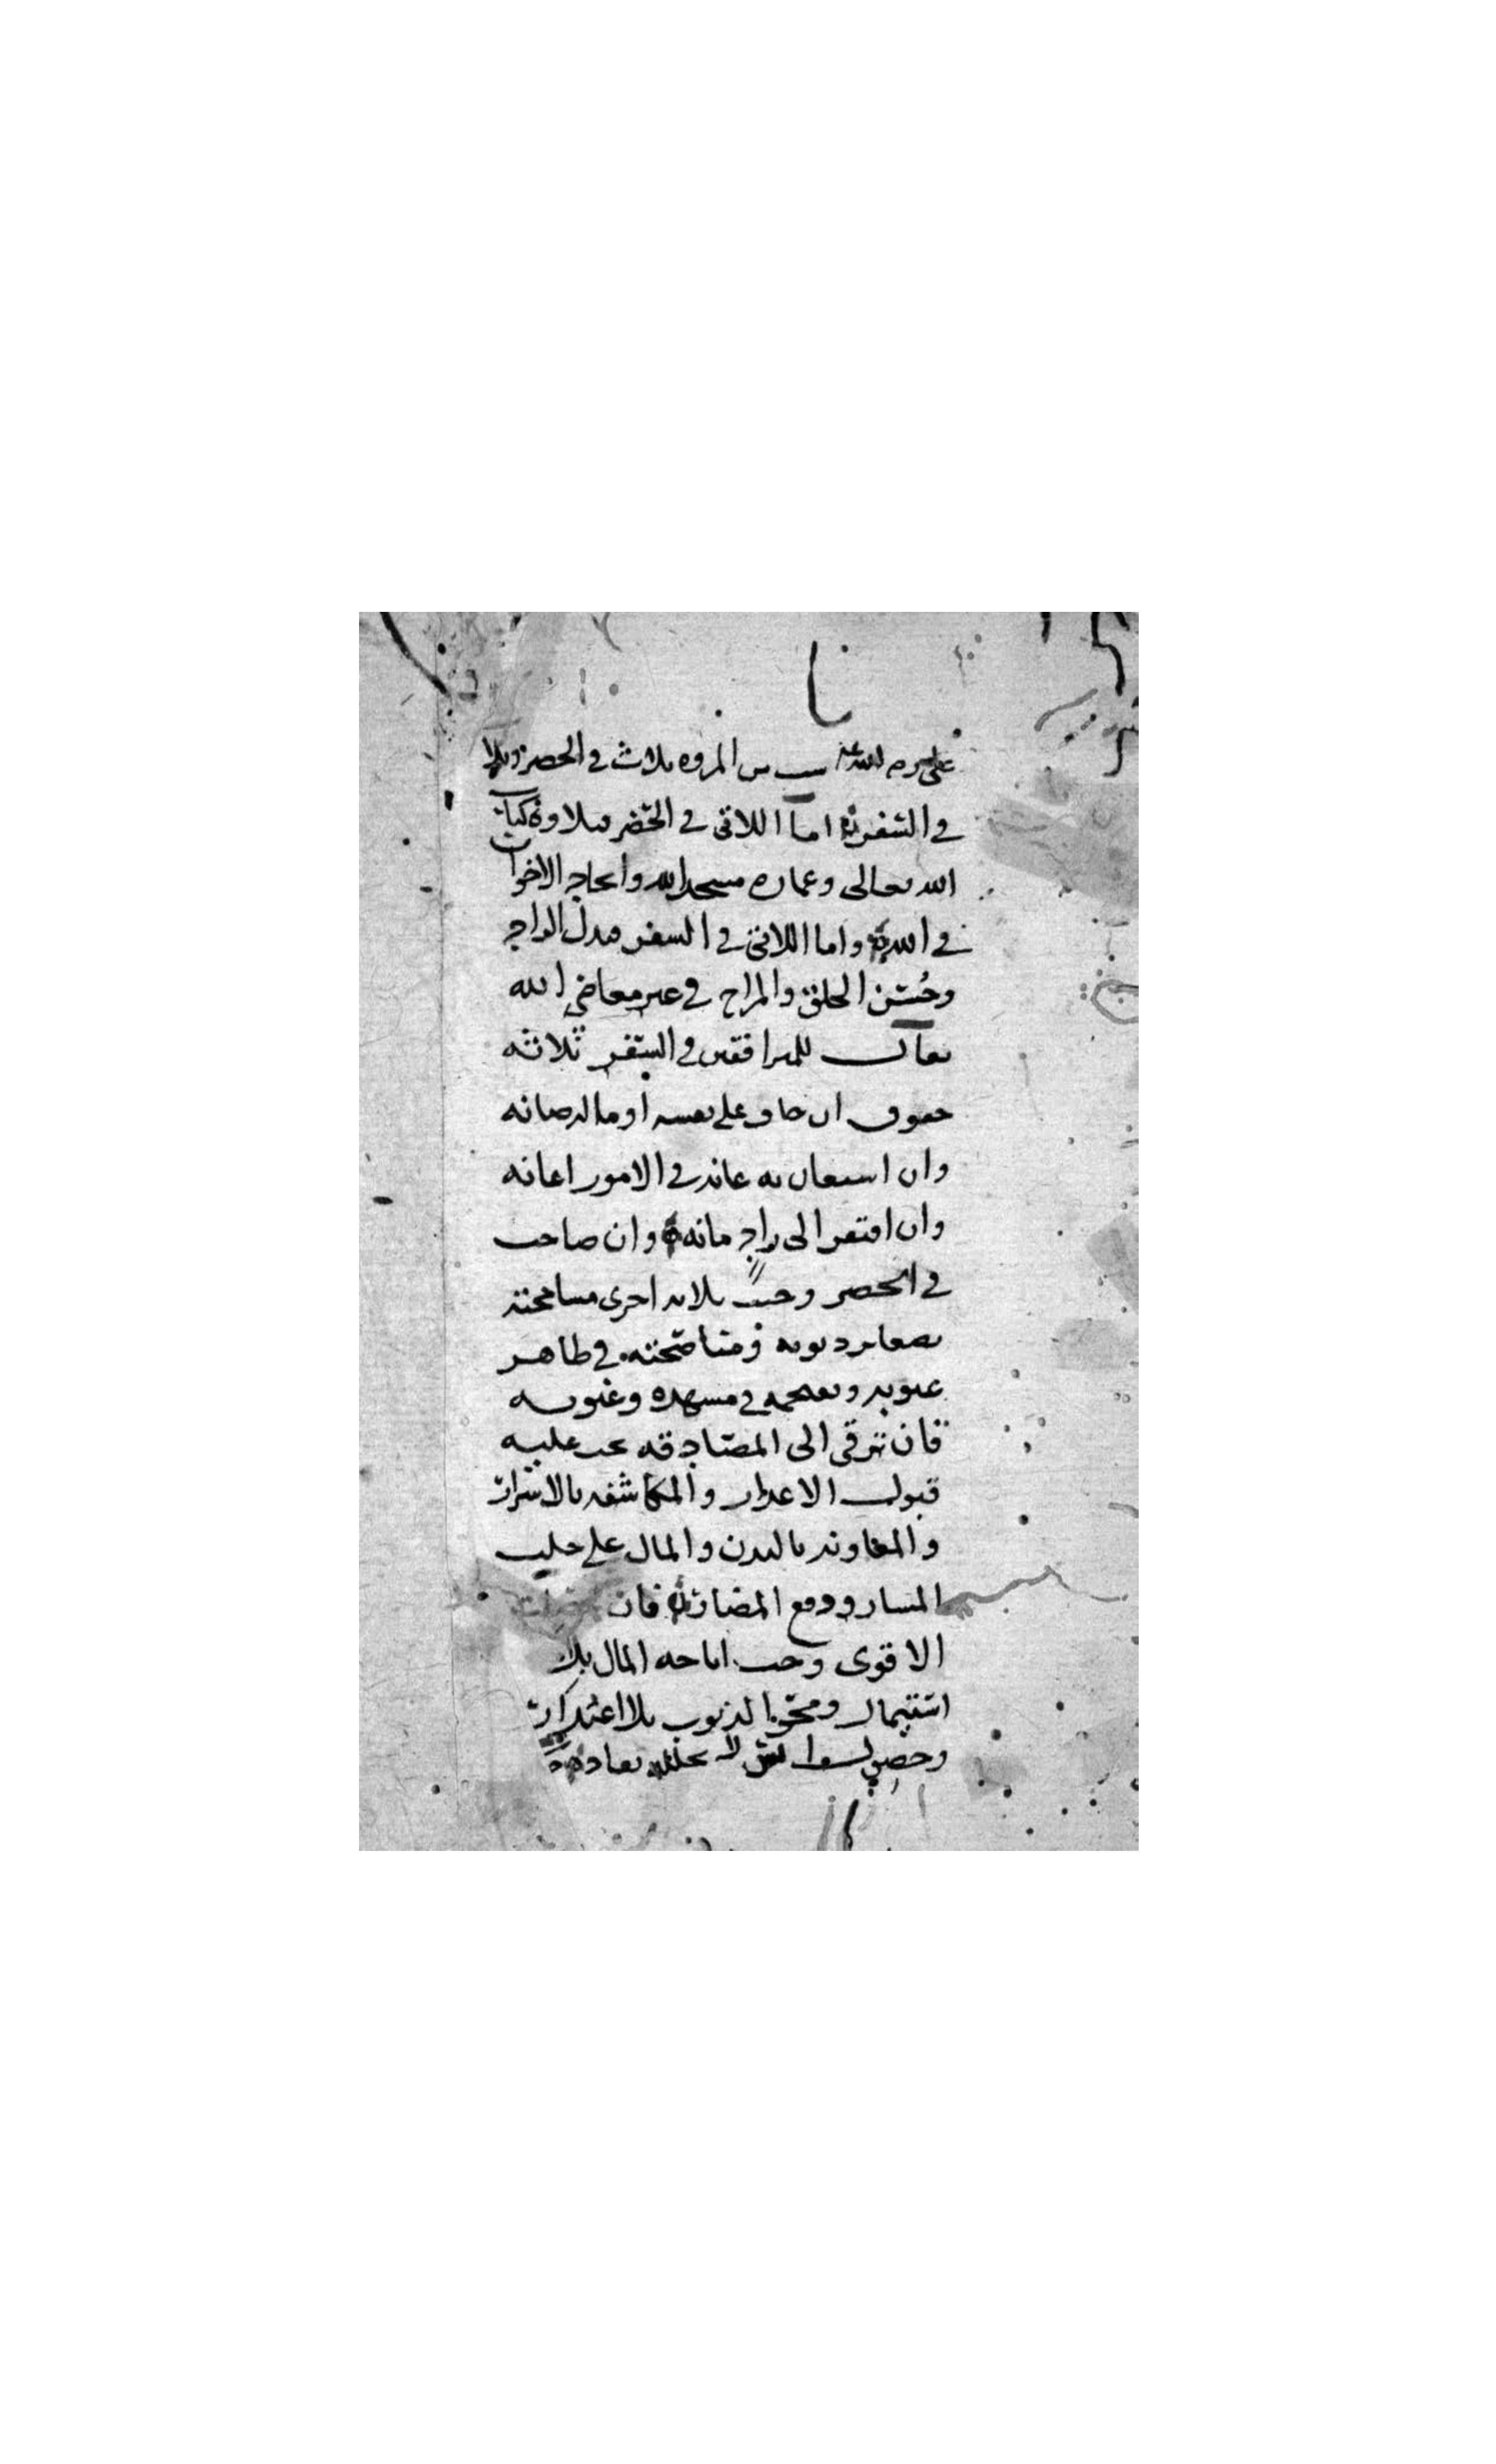 على كرم الله ست من المروه ثلاث في الحضر وثلاث
في السفر اما اللاتي في الحضر فتلاوة كتاب
الله تعالى وعماره مسجد الله واتحاد الاخوان
في الله واما اللاتي في السفر فبذل الزاد
وحُسن الخلق والمزاح في غير معاصي الله
تعالى للمرافقين في السفر ثلاثه
حقوق ان خاف على نفسه او ماله صانه
وان استعان به عانه في الامور اعانه
وان افتقر الى زاد مانه وان صاحب
في الحضر وجبت ثلاثه اخرى مسامحته
بصغاير ذنوبه ومناصحته في ظاهر
عيوبه في مشهده وغيوبه
فان ترقى الى المصادقه يجب عليه
قبول الاعذار والمكاشفه بالاسرار
والمعاونه بالبدن والمال على جلب
المسار ودفع المضار فان
الاقوى وجب اباحه المال بلا
استيمار ومحو الذنوب بلا اعتذار